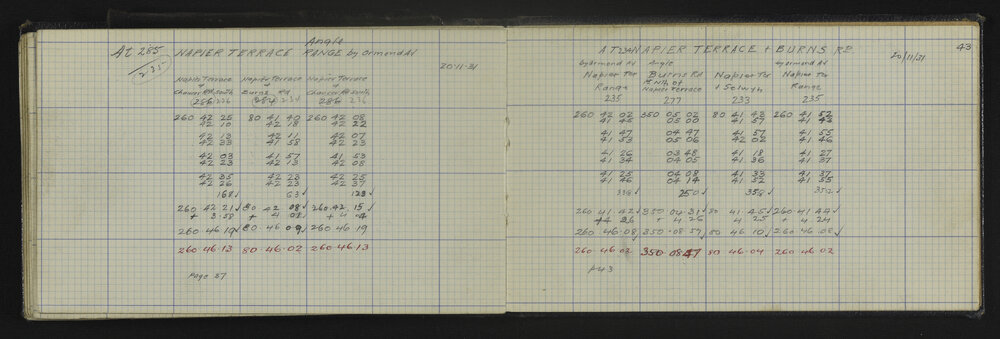 At 285
235
Angle
NAPIER TERRACE RANGE by Ormond Av
20-11-31
Napier Terrace Napier Terrace Napier Terrace
Chaucer Rd South Burns Rd Chaucer Rd South
(286) 236 (284) 234 286 236
260 42 25 80 41 40 260 42 08
42 10 42 18 42 22
42 13 42 11 42 07
42 23 41 58 42 23
42 03 41 57 41 53
42 23 42 13 42 08
42 35 42 23 42 25
42 26 42 23 42 37
168 63 123
260 42 21 80 42 08 260 42 15
+ 3.58 + 4 02 + 4 04
260 46 19 80 46 09 260 46 19
260 46 13 80 46 02 260 46 13
Page 37
43
AT 234 NAPIER TERRACE + BURNS Rd
20/11/31
by Ormond Av Angle by Ormond Av
Napier Ter Burns Rd Napier Ter Napier Ter
Range Nth of Napier Terrace + Selwyn Range
235 277 233 235
260 42 02 350 05 02 80 41 43 260 41 52
41 45 05 00 41 57 41 43
41 47 04 47 41 57 41 55
41 53 05 06 42 02 41 46
41 26 03 48 41 18 41 27
41 34 04 05 41 36 41 37
41 25 04 08 41 33 41 37
41 46 04 14 41 52 41 55
338 250 358 352
260 41 42 350 04 31 80 41 45 260 41 44
+4 26 + 4 26 4 25 + 4 24
260 46 08 350 08 57 80 46 10 260 46 08
260 46 02 350 08 47 80 46 04 260 46 02